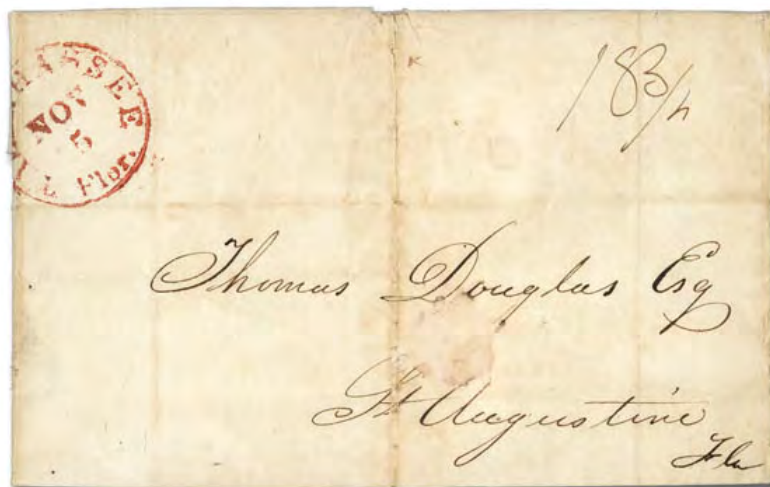 TALLAHASSEE
NOV
5
Flor.
18 3/4
Thomas Douglas Esq
St Augustine
Fla